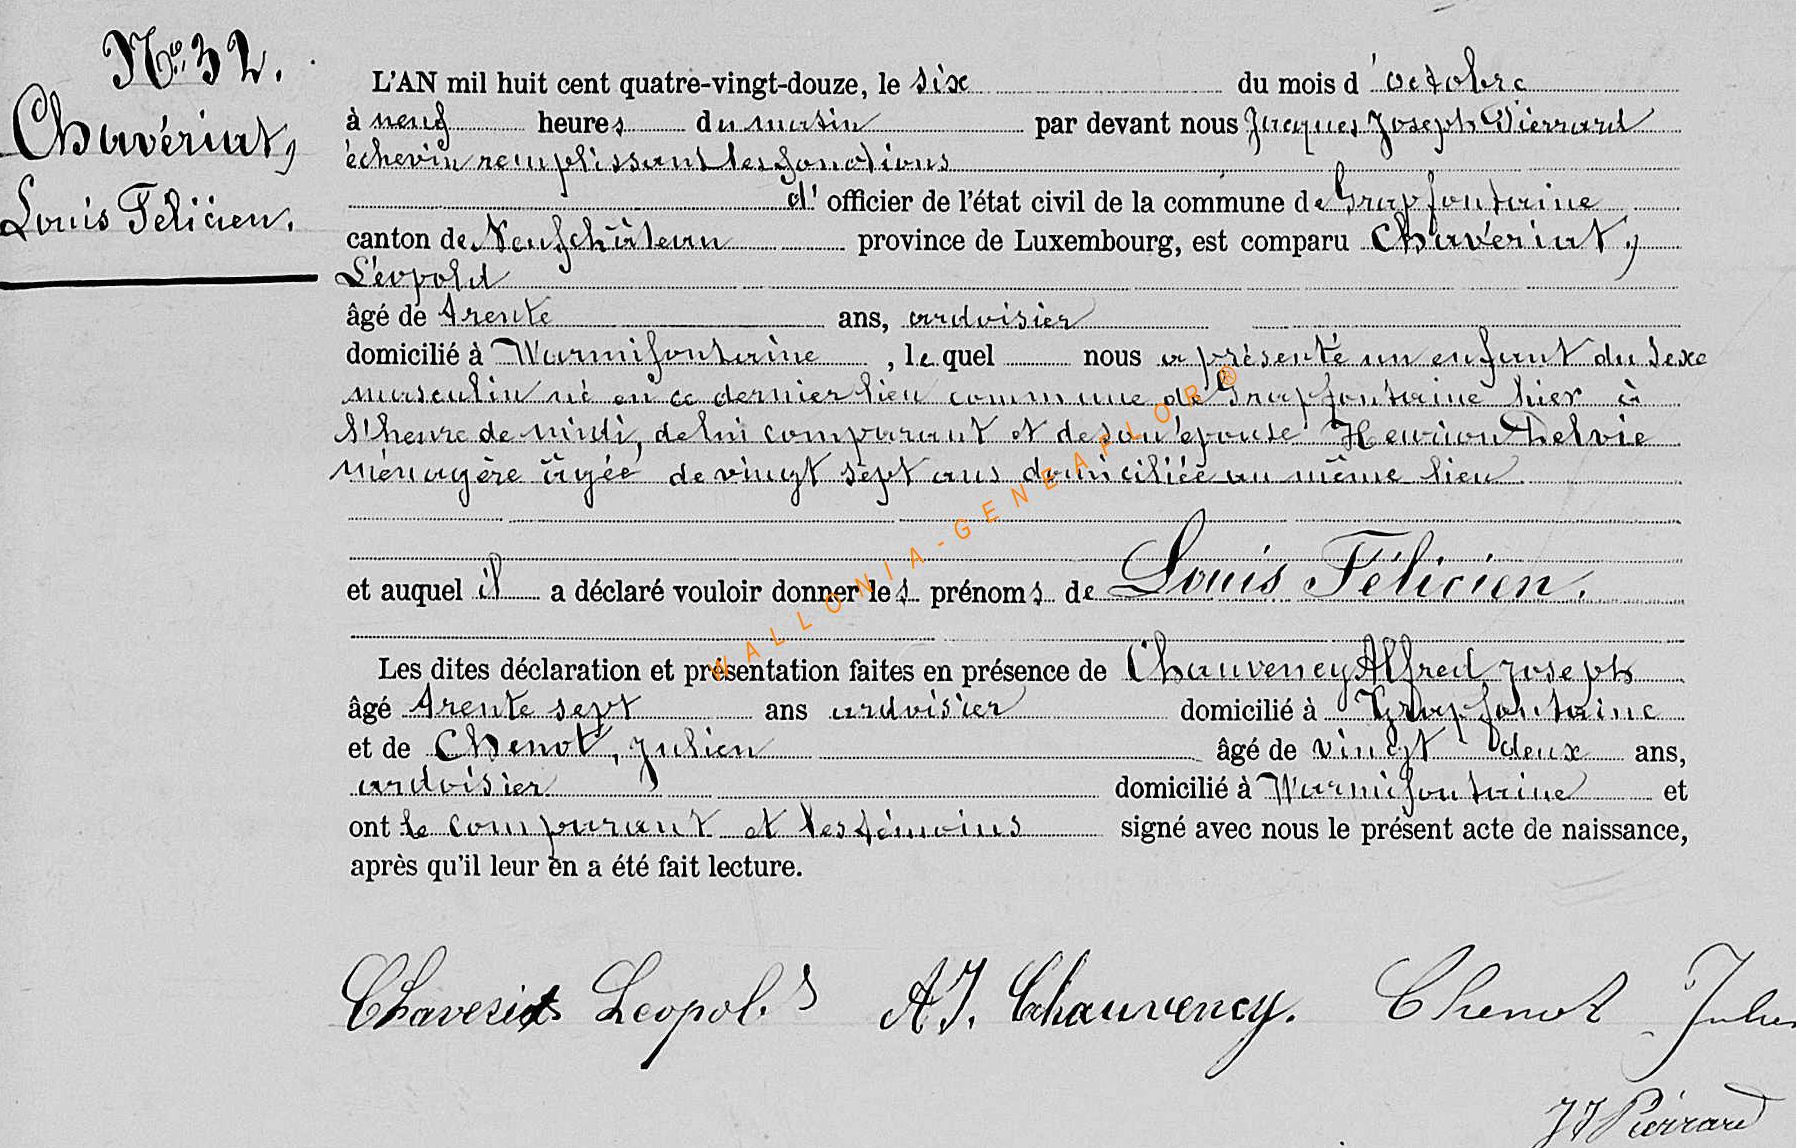 N° 32.
Chavériat,
Louis Félicien.
L'AN mil huit cent quatre-vingt-douze, le six du mois d'octobre
à neuf heures du matin par devant nous Jacques Joseph Pierrard
échevin remplissant les fonctions
d' officier de l'état civil de la commune de Grapfontaine
canton de Neufchâteau province de Luxembourg, est comparu Chavériat,
Léopold
âgé de trente ans, ardoisier
domicilié à Warmifontaine, lequel nous a présenté un enfant du sexe
masculin né en ce dernier lieu commune de Grapfontaine hier à
l'heure de midi, de lui comparant et de son épouse Henrion Delvie
ménagère âgée de vingt sept ans domiciliée au même lieu.
et auquel il a déclaré vouloir donner les prénoms de Louis Félicien.
Les dites déclaration et présentation faites en présence de Chauvency Alfred Joseph
âgé trente sept ans ardoisier domicilié à Grapfontaine
et de Chenot, Julien âgé de vingt deux ans,
ardoisier domicilié à Warmifontaine et
ont le comparant et les témoins signé avec nous le présent acte de naissance,
après qu'il leur en a été fait lecture.
Leopold A J. Chauvency. Chenot Julien
JJ Pierrard
WALLONIA-GENEAFLOR®